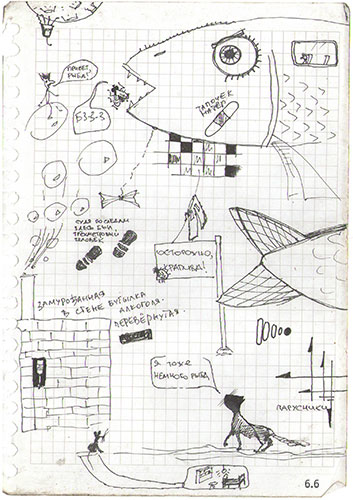 ПРИВЕТ,
РЫБА!
БЗ-З-З
ТАПОЧЕК
НАТЁР
СУДЯ ПО СЛЕДАМ
ЗДЕСЬ БЫЛ
ТРЁХМЕТРОВЫЙ
ЧЕЛОВЕК
ОСТОРОЖНО,
КРАПИВА!
ЗАМУРОВАННАЯ
В СТЕНЕ БУТЫЛКА
АЛКОГОЛЯ.
ПЕРЕВЁРНУТАЯ.
Я ТОЖЕ
НЕМНОГО РЫБА
ПАРУСНИКИ
6.6